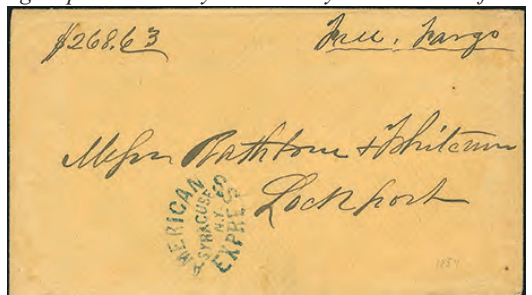 $268.63 Free. Fargo
Messrs Rathbone &
Lockport
AMERICAN
EXPRESS CO
SYRACUSE
N.Y.